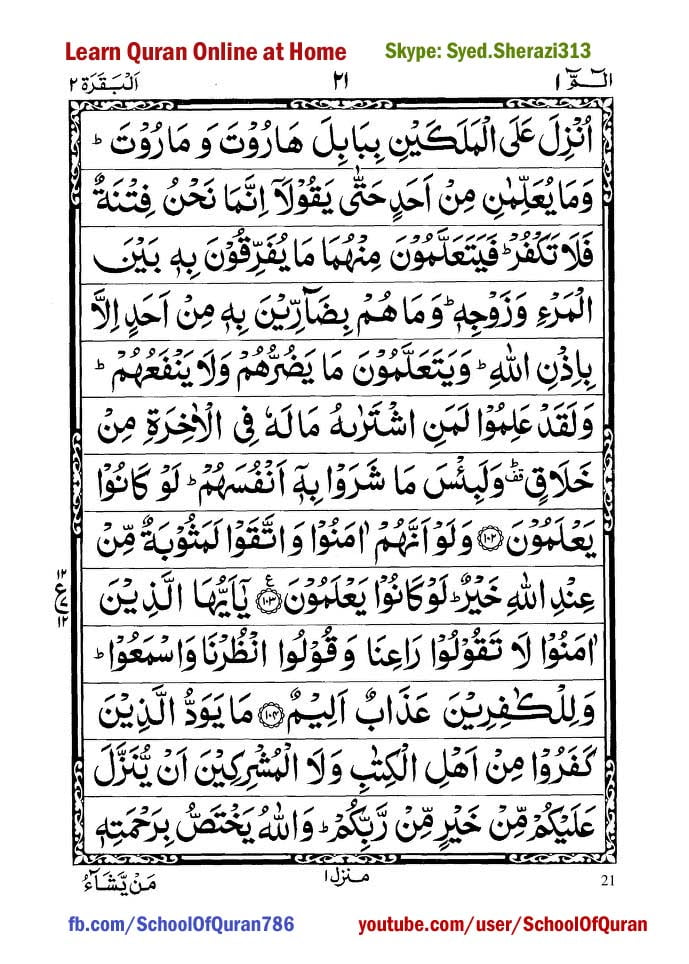 Learn Quran Online at Home Skype: Syed.Sherazi313
الٓمّٓ ١ ٢١ اَلْبَقَرَة ٢
اُنْزِلَ عَلَى الْمَلَكَيْنِ بِبَابِلَ هَارُوْتَ وَ مَارُوْتَ ؕ
وَمَا يُعَلِّمٰنِ مِنْ اَحَدٍ حَتّٰى يَقُوْلَاۤ اِنَّمَا نَحْنُ فِتْنَةٌ
فَلَا تَكْفُرْ ؕ فَيَتَعَلَّمُوْنَ مِنْهُمَا مَا يُفَرِّقُوْنَ بِهٖ بَيْنَ
الْمَرْءِ وَزَوْجِهٖ ؕ وَمَا هُمْ بِضَآرِّيْنَ بِهٖ مِنْ اَحَدٍ اِلَّا
بِاِذْنِ اللّٰهِ ؕ وَيَتَعَلَّمُوْنَ مَا يَضُرُّهُمْ وَلَا يَنْفَعُهُمْ ؕ
وَلَقَدْ عَلِمُوْا لَمَنِ اشْتَرٰىهُ مَا لَهٗ فِى الْاٰخِرَةِ مِنْ
خَلَاقٍ ؕ۟ وَلَبِئْسَ مَا شَرَوْا بِهٖۤ اَنْفُسَهُمْ ؕ لَوْ كَانُوْا
يَعْلَمُوْنَ ١٠٢ وَلَوْ اَنَّهُمْ اٰمَنُوْا وَاتَّقَوْا لَمَثُوْبَةٌ مِّنْ
عِنْدِ اللّٰهِ خَيْرٌ ؕ لَوْ كَانُوْا يَعْلَمُوْنَ ١٠٣ يٰۤاَيُّهَا الَّذِيْنَ
١٢
ع
٧
١٢
اٰمَنُوْا لَا تَقُوْلُوْا رَاعِنَا وَقُوْلُوا انْظُرْنَا وَاسْمَعُوْا ؕ
وَلِلْكٰفِرِيْنَ عَذَابٌ اَلِيْمٌ ١٠٤ مَا يَوَدُّ الَّذِيْنَ
كَفَرُوْا مِنْ اَهْلِ الْكِتٰبِ وَلَا الْمُشْرِكِيْنَ اَنْ يُّنَزَّلَ
عَلَيْكُمْ مِّنْ خَيْرٍ مِّنْ رَّبِّكُمْ ؕ وَاللّٰهُ يَخْتَصُّ بِرَحْمَتِهٖ
21 منزل ١ مَنْ يَّشَآءُ
fb.com/SchoolOfQuran786 youtube.com/user/SchoolOfQuran